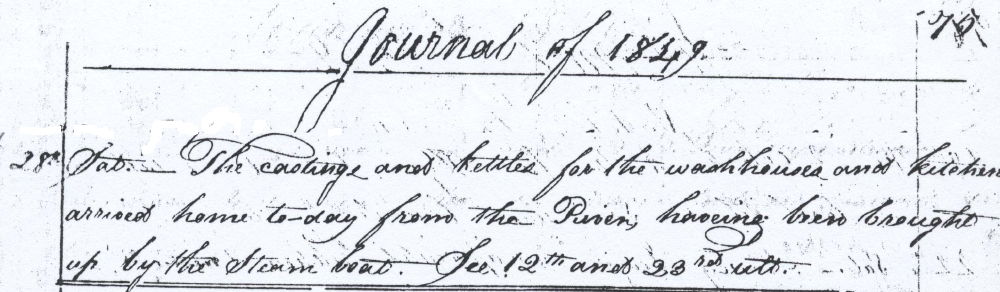 Journal of 1849.
75
28th Sat. — The castings and kettles for the washhouses and kitchen
arrived home to-day from the River, haveing been brought
up by the Steam boat. — See 12th and 23rd ult. —